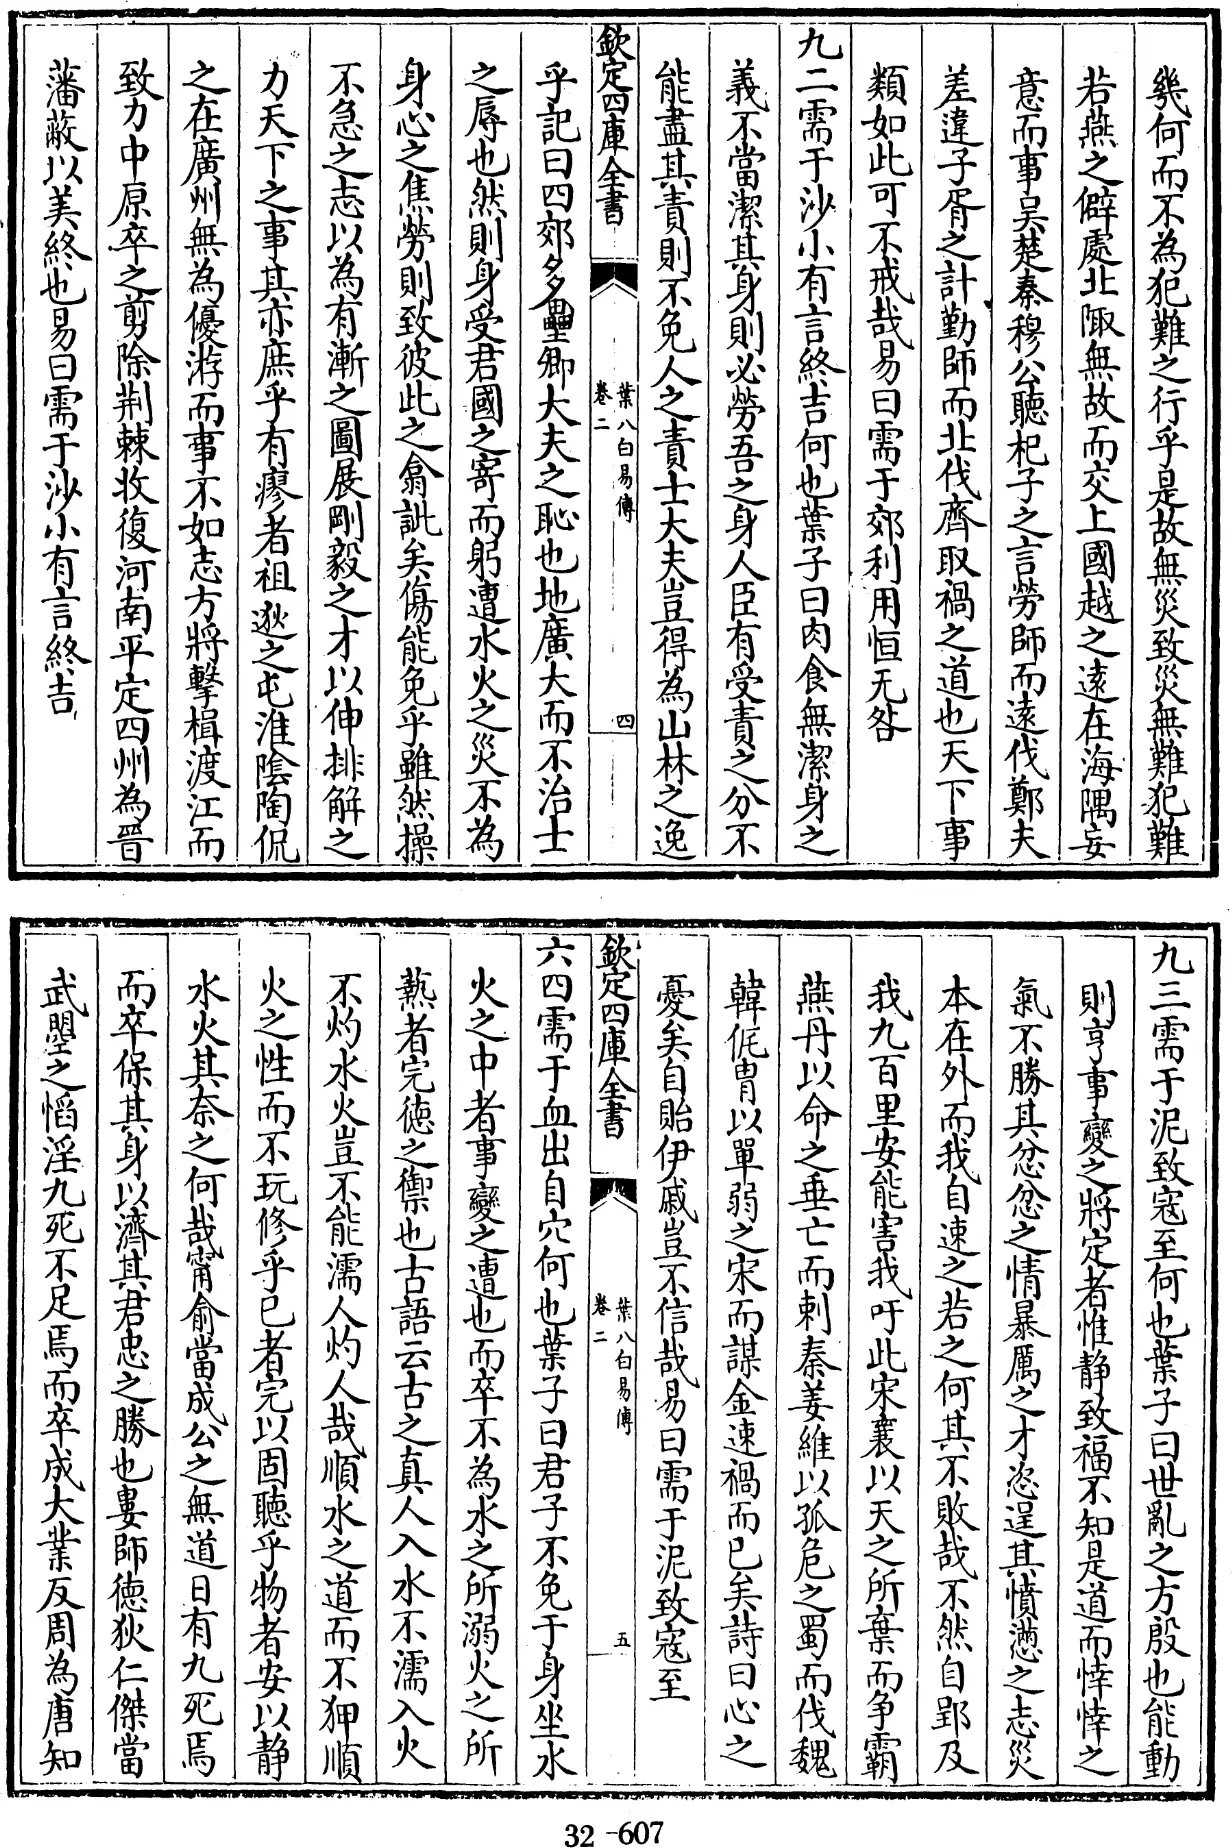 幾何而不為犯難之行乎是故無災致災無難犯難
若燕之僻處北陬無故而交上國越之遠在海隅妄
意而事吴楚秦穆公聽杞子之言勞師而遠伐鄭夫
差違子胥之計勤師而北伐齊取禍之道也天下事
類如此可不戒哉易曰需于郊利用恒无咎
九二需于沙小有言終吉何也葉子曰肉食無潔身之
義不當潔其身則必勞吾之身人臣有受責之分不
能盡其責則不免人之責士大夫豈得為山林之逸
欽定四庫全書
葉八白易傳
卷二
四
乎記曰四郊多壘卿大夫之恥也地廣大而不治士
之辱也然則身受君國之寄而躬遭水火之災不為
身心之焦勞則致彼此之翕訿矣傷能免乎雖然操
不急之志以為有漸之圖展剛毅之才以伸排解之
力天下之事其亦庶乎有瘳者祖逖之屯淮陰陶侃
之在廣州無為優游而事不如志方將擊楫渡江而
致力中原卒之剪除荆棘收復河南平定四州為晉
藩蔽以美終也易曰需于沙小有言終吉
九三需于泥致寇至何也葉子曰世亂之方殷也能動
則亨事變之將定者惟静致福不知是道而悻悻之
氣不勝其忿忿之情暴厲之才恣逞其憤懣之志災
本在外而我自速之若之何其不敗哉不然自郢及
我九百里安能害我吁此宋襄以天之所棄而争霸
燕丹以命之垂亡而刺秦姜維以孤危之蜀而伐魏
韓侂胄以單弱之宋而謀金速禍而已矣詩曰心之
憂矣自貽伊戚豈不信哉易曰需于泥致寇至
欽定四庫全書
葉八白易傳
卷二
五
六四需于血出自穴何也葉子曰君子不免于身坐水
火之中者事變之遭也而卒不為水之所溺火之所
熱者完德之禦也古語云古之真人入水不濡入火
不灼水火豈不能濡人灼人哉順水之道而不狎順
火之性而不玩修乎已者完以固聽乎物者安以静
水火其奈之何哉甯俞當成公之無道日有九死焉
而卒保其身以濟其君忠之勝也婁師德狄仁傑當
武曌之慆淫九死不足焉而卒成大業反周為唐知
32-607